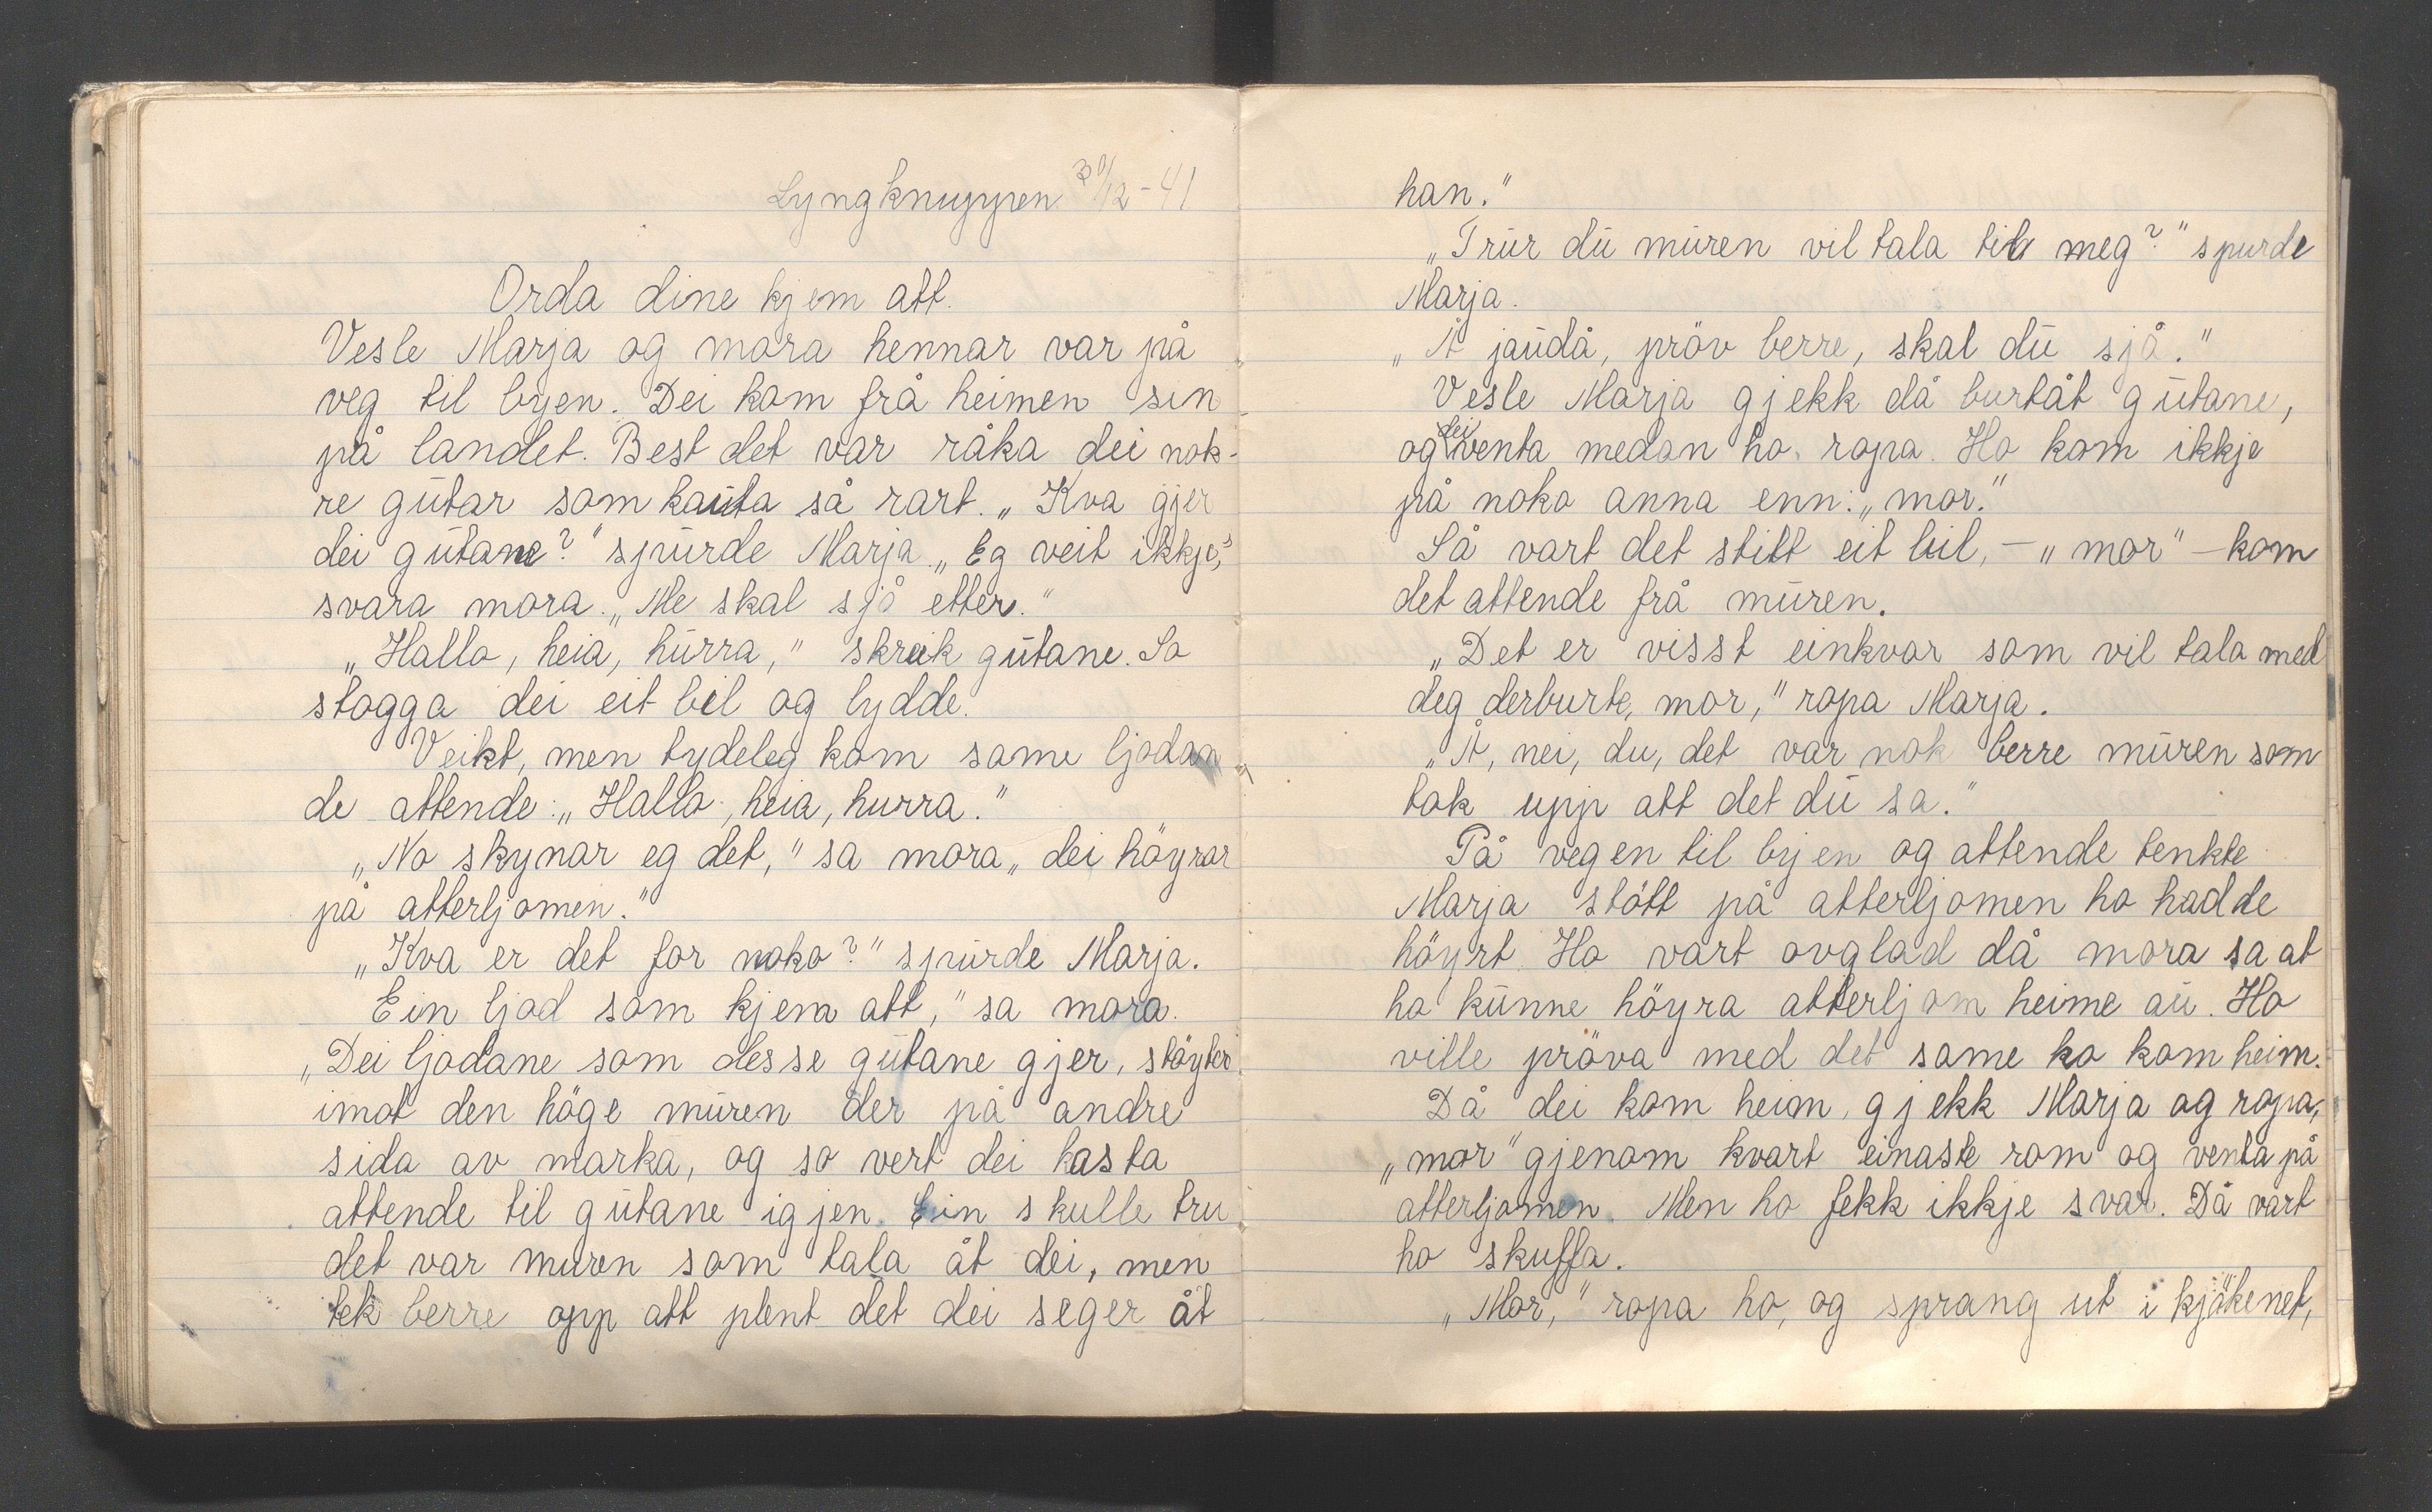 Lyngknuppen 30/12-41
Orda dine kjem att.
Vesle Marja og mora hennar var på
veg til byen. Dei kom frå heimen sin
på landet. Best det var råka dei nok-
re gutar som kauta så rart. „Kva gjer
dei gutane?" spurde Marja. „Eg veit ikkje,"
svara mora. „Me skal sjå etter."
„Hallo, heia, hurra," skreik gutane. So
stogga dei eit bil og lydde.
Veikt, men tydeleg kom same ljodan
de attende: „Hallo, heia, hurra."
„No skynar eg det," sa mora „dei höyrar
på atterljomen."
„Kva er det for noko?" spurde Marja.
Ein ljod som kjem att," sa mora.
„Dei ljodane som desse gutane gjer, stöyter
imot den höge muren der på andre
sida av marka, og so vert dei kasta
attende til gutane igjen. Ein skulle tru
det var muren som tala åt dei, men
tek berre opp att plent det dei seger åt
han."
„Trur du muren vil tala til meg?" spurde
Marja.
„Å jaudå, pröv berre, skal du sjå."
Vesle Marja gjekk då burtåt gutane,
og dei venta medan ho ropa. Ho kom ikkje
på noko anna enn: „mor."
Så vart det stilt eit bil, – „mor" – kom
det attende frå muren.
„Det er visst einkvar som vil tala med
deg derburte, mor," ropa Marja.
„Å, nei, du, det var nok berre muren som
tok upp att det du sa."
På vegen til byen og attende tenkte
Marja stött på atterljomen ho hadde
höyrt. Ho vart ovglad då mora sa at
ho kunne höyra atterljom heime au. Ho
ville pröva med det same ho kom heim.
Då dei kom heim, gjekk Marja og ropa,
„mor" gjenom kvart einaste rom og venta på
atterljomen. Men ho fekk ikkje svar. Då vart
ho skuffa.
„Mor," ropa ho, og sprang ut i kjökenet,